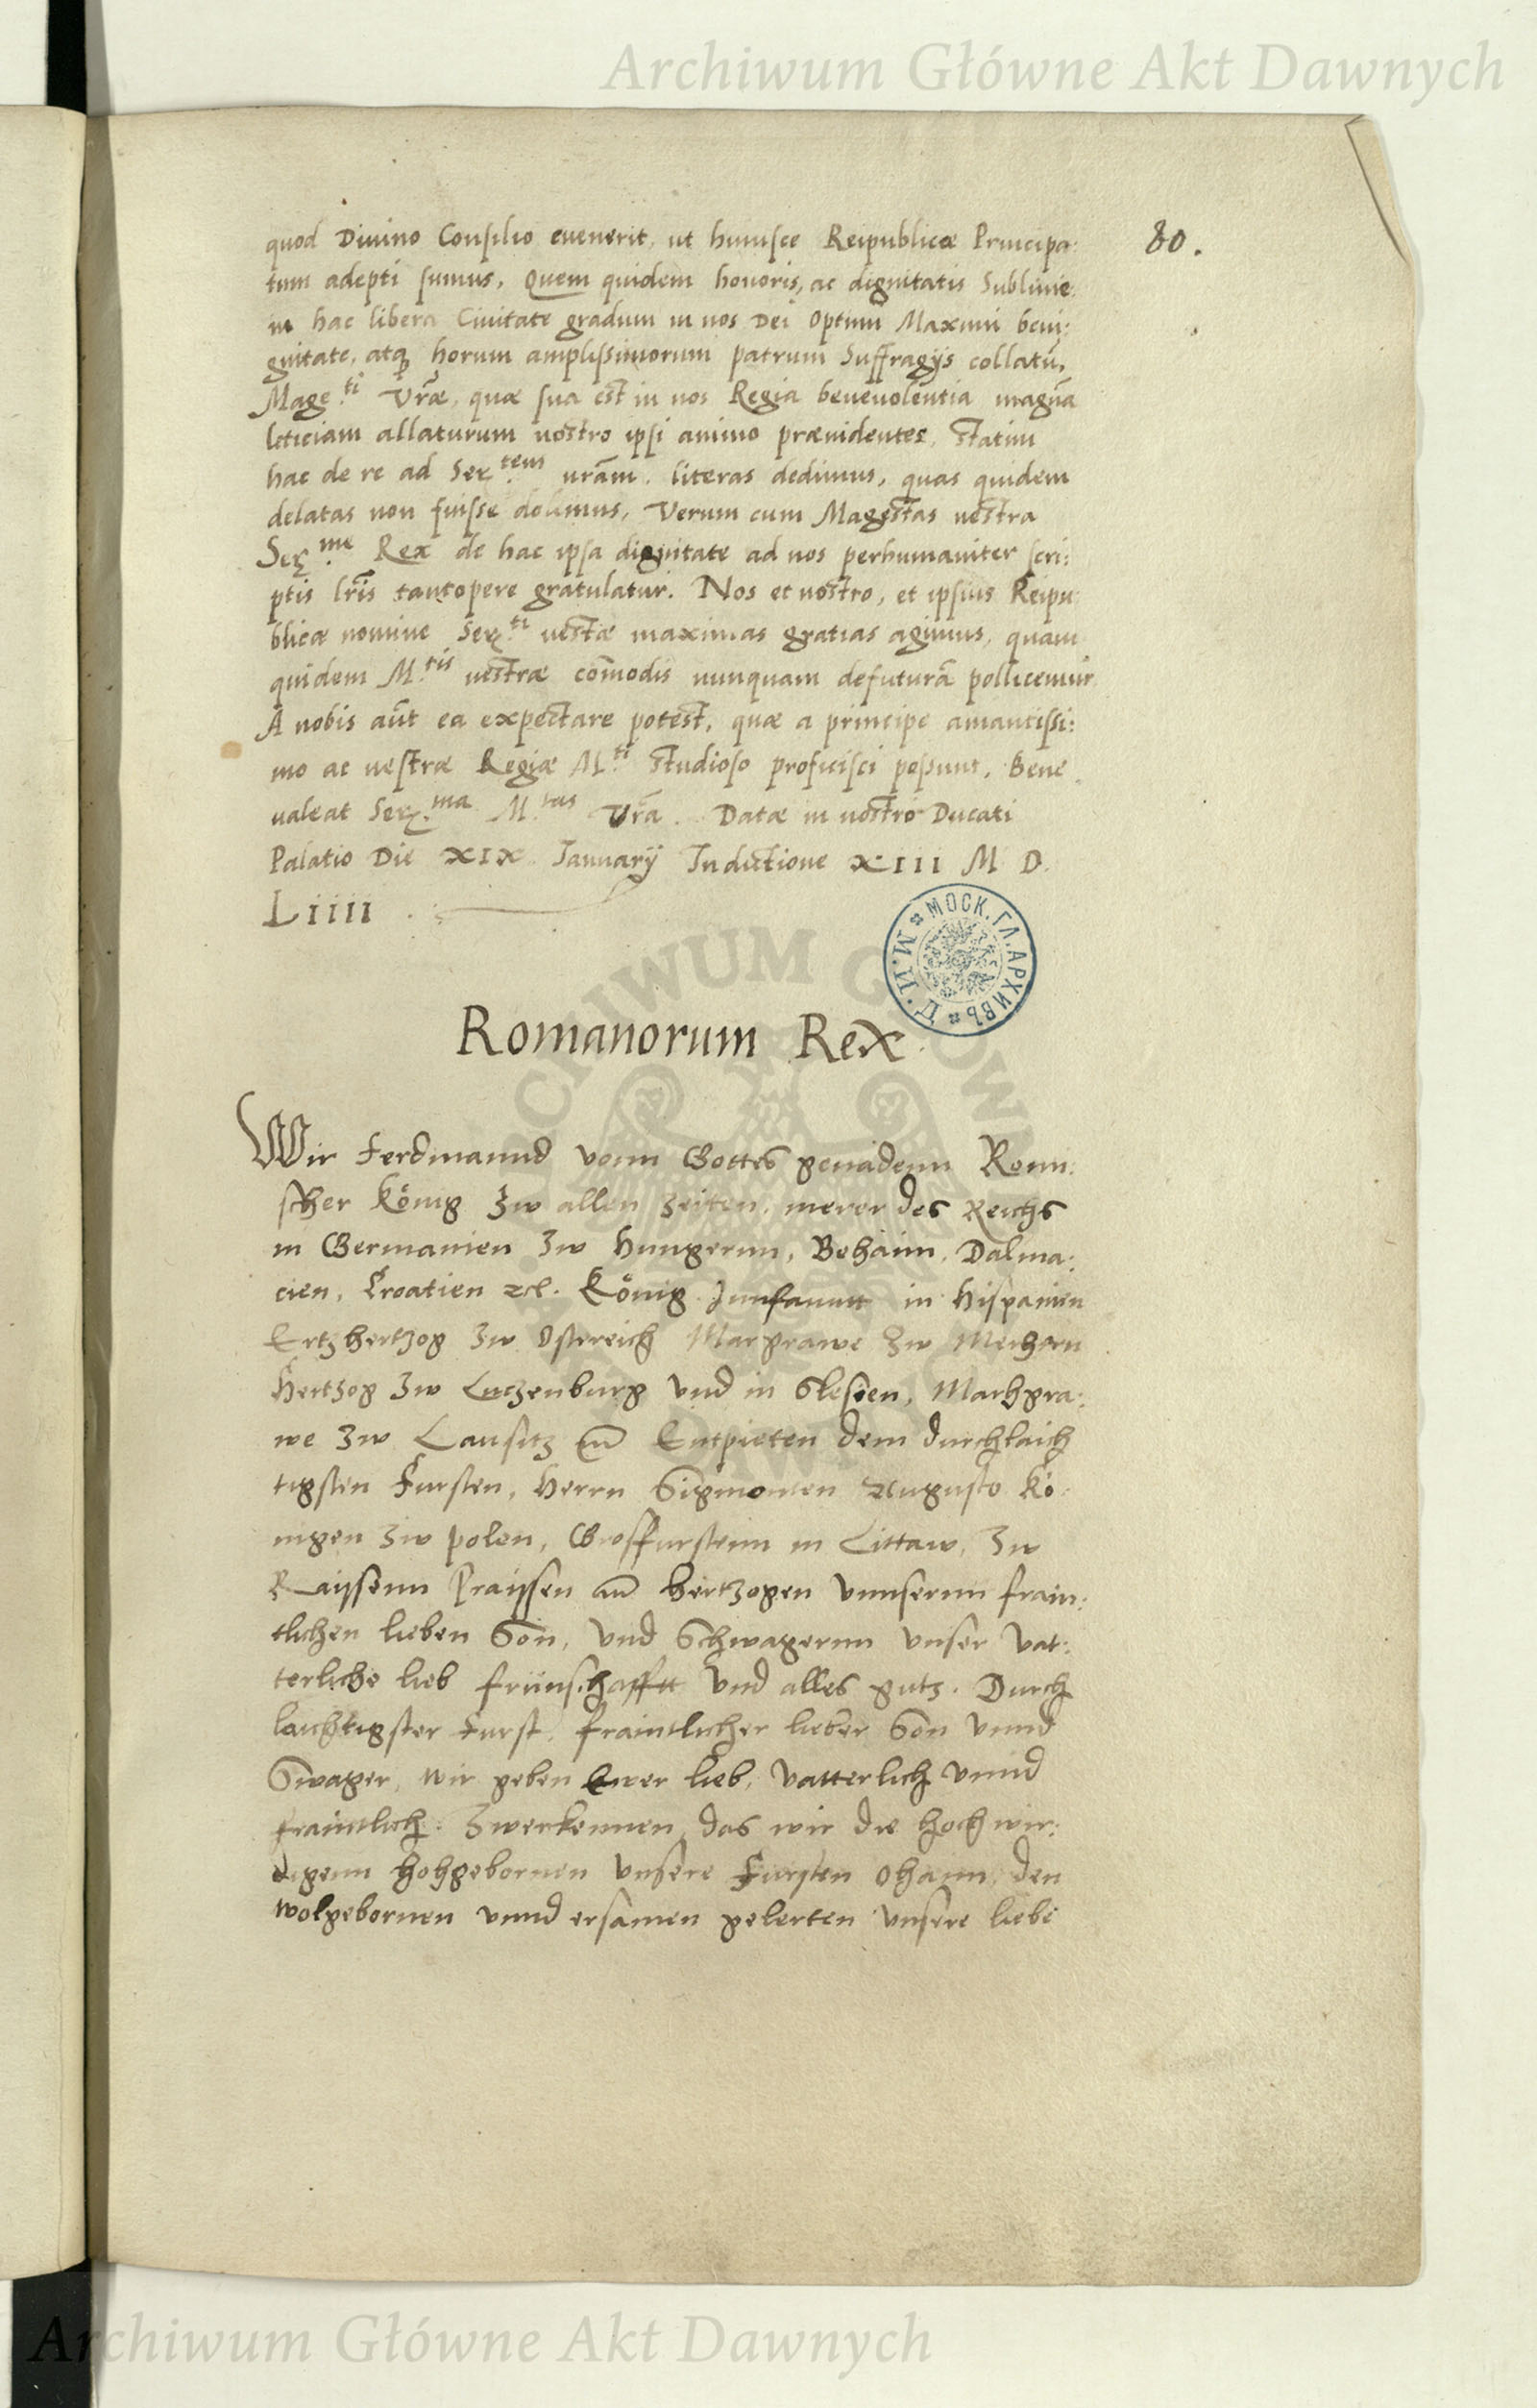 Archiwum Główne Akt Dawnych
80.
quod Diuino Consilio euenerit, ut huiusce Reipublicæ Principa:
tum adepti sumus, Quem quidem honoris, ac dignitatis Sublime
in hac libera Ciuitate gradum in nos Dei Optimi Maximi beni:
gnitate, atq horum amplissimorum patrum Suffragijs collatũ,
Mage.ti Vræ, quæ sua est in nos Regia beneuolentia magnã
leticiam allaturum nostro ipsi animo præuidentes, statim
hac de re ad Ser.tem uram. literas dedimus, quas quidem
delatas non fuisse dolemus, Verum cum Magestas uestra
Ser.me Rex de hac ipsa dignitate ad nos perhumaniter scri:
ptis lris tantopere gratulatur. Nos et nostro, et ipsius Reipu
blicæ nomine Ser.ti uestræ maximas gratias agimus, quam
quidem M.tis uestræ comodis nunquam defuturã pollicemur
A nobis aut ea expectare potest, quæ a principe amantissi:
mo ac uestræ Regiæ M.ti studioso proficisci possunt, Bene
ualeat Ser.ma M.tas Vra. Datæ in nostro Ducati
Palatio Die XIX Januarij Indictione XIII M D.
Liiii
МОСК. ГЛ. АРХИВЪ М. И. Д.
Romanorum Rex
Wir Ferdinannd vonn Gottes genadenn Rom:
scher König zw allen zeiten, merer des Reichs
in Germanien zw Hungernn, Behaim, Dalma:
cien, Croatien zcl. König Innfanntt in Hispanien
Ertzhertzog zw Osterreich Margrawe zw Merhern
Hertzog zw Lutzenburg vnd in Slesien, Marhgra:
we zw Lausitz Entpieten dem durchlaich
tigsten Fursten, Herrn Sigmonten Augusto Kö
nigen zw polen, Grosffurstenn in Littaw, zw
Raÿssenn Praÿssen hertzogen vnnsernn frain:
tlichen lieben Son, vnd Schwagernn vnser vat:
terliche lieb frünschafftt vnd alles gutz. Durch
laichtigster Furst, fraintlicher lieber Son vnnd
Swager, wir geben Ewer lieb, vatterlich vnnd
fraintlich zwerkennen, das wir die hochwir:
digenn hohgebornen vnsere Fursten Ohaim, den
wolgebornen vnnd ersamen gelerten vnsere liebe
Archiwum Główne Akt Dawnych